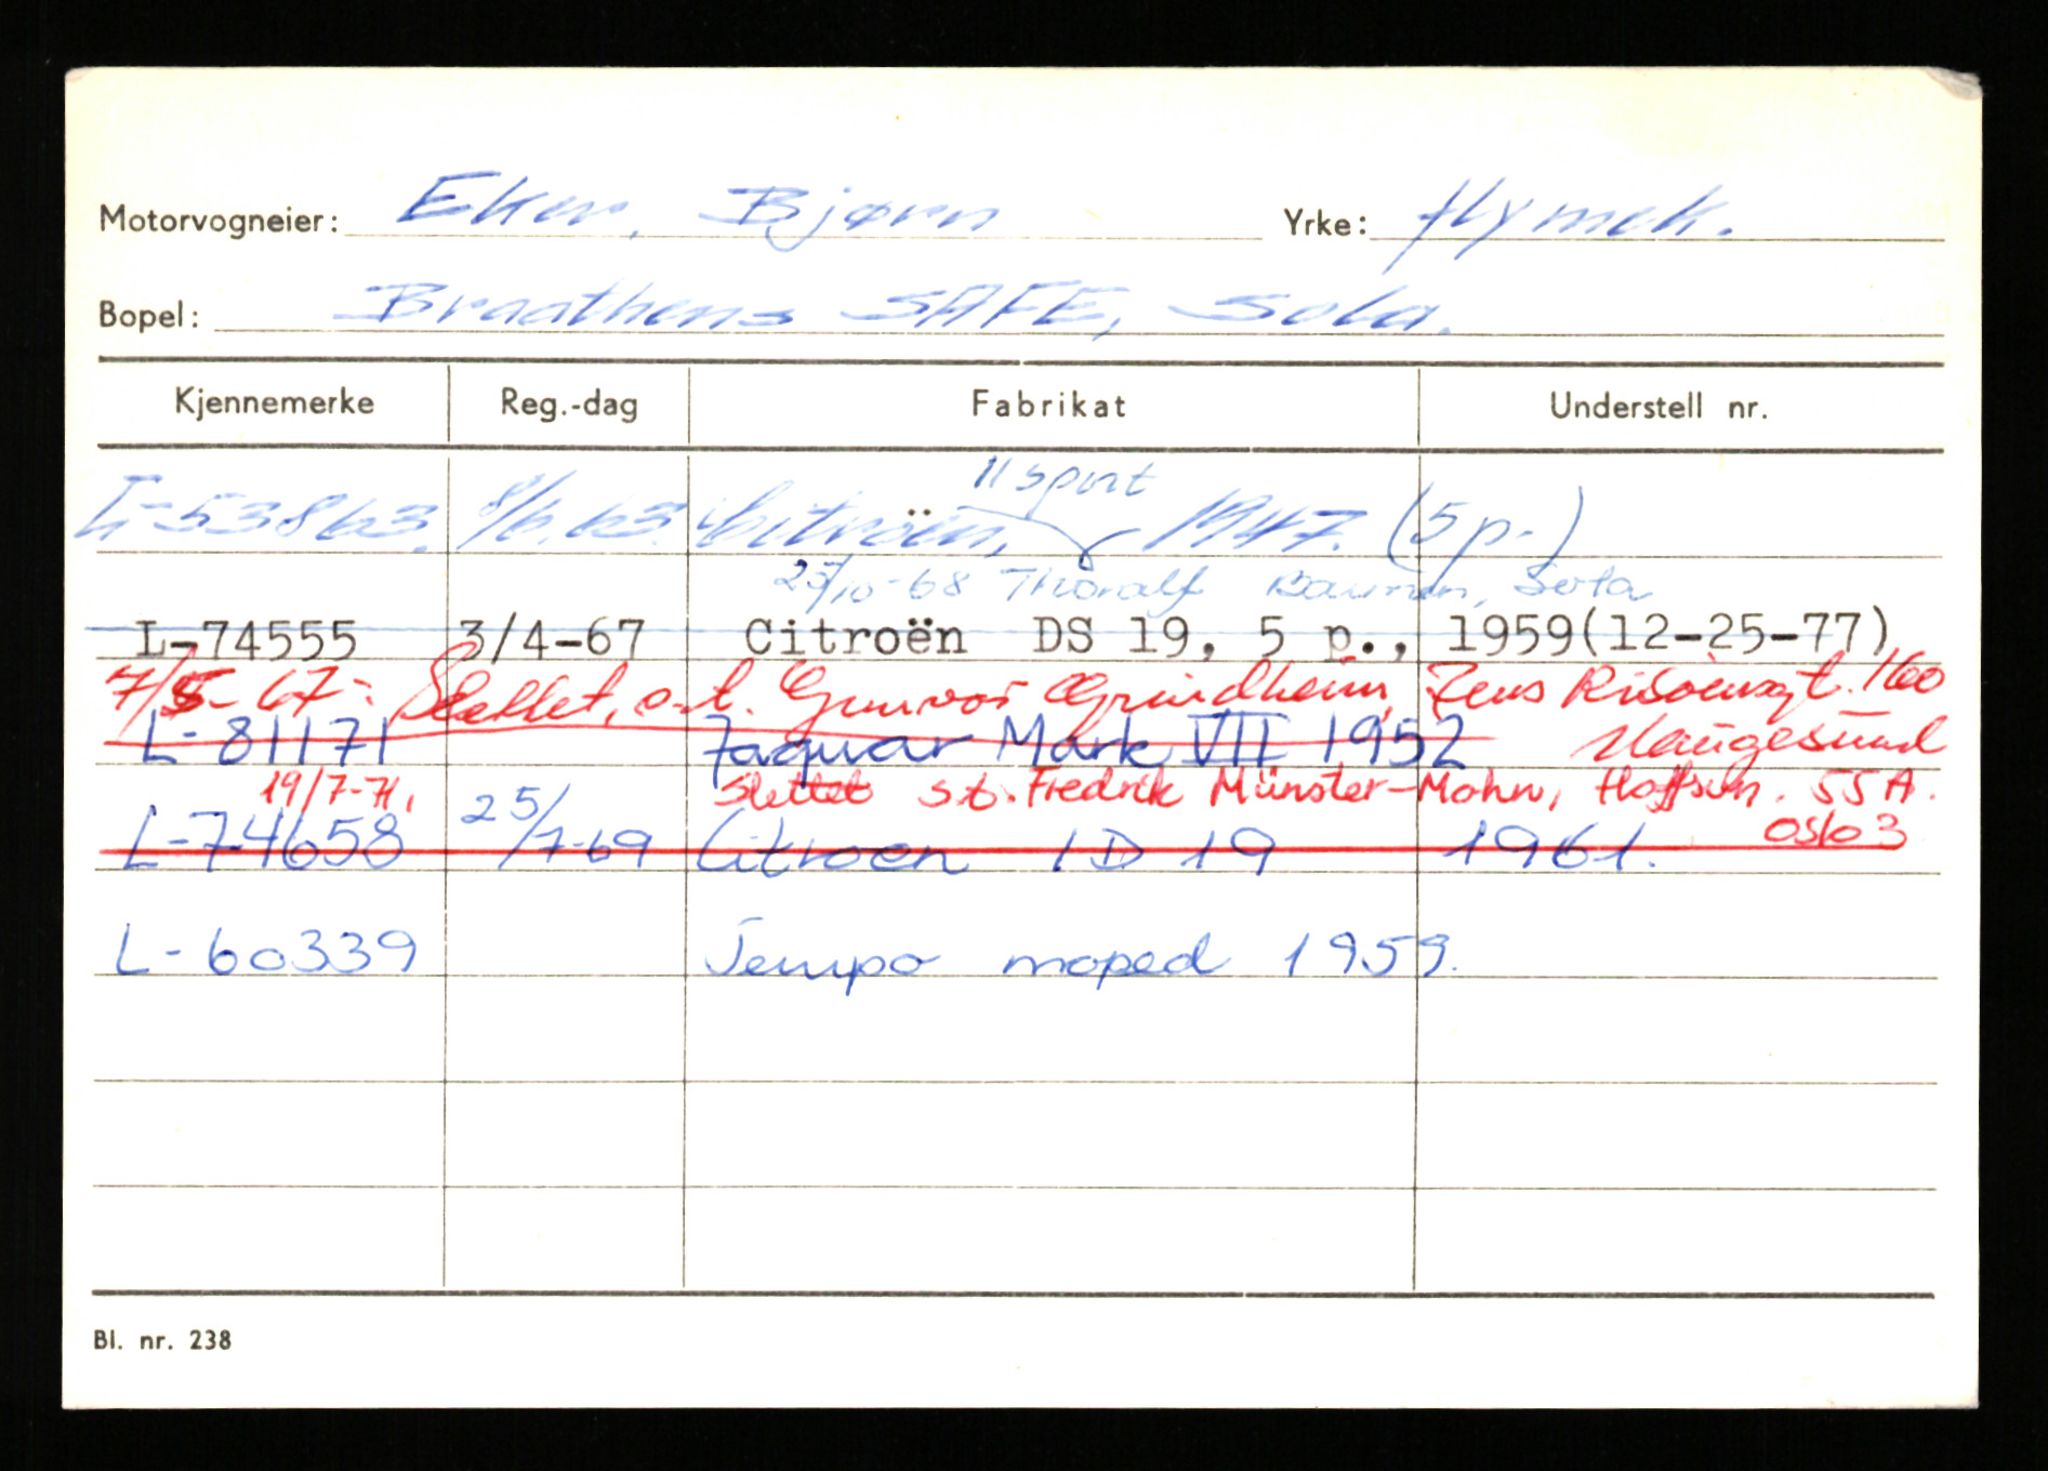 Motorvogneier: Eker, Bjørn Yrke: flymek.
Bopel: Braathens SAFE, Sola.
Kjennemerke Reg.-dag Fabrikat Understell nr.
11 sport
L-53863. 8/6.63. Citroën, 1947. (5 p.)
25/10-68 Thoralf Sola
L-74555 3/4-67 Citroën DS 19, 5 p., 1959(12-25-77)
7/5-67: Slettet, s.t. Gunvor Grindheim, Jens Risøensgt. 160
Haugesund
L-81171 Jaguar Mark VII 1952
19/7-71, Slettet s.t. Fredrik Münster-Mohn, Hoffsvn. 55 A.
Oslo 3
L-74658 25/7-69 Citroen ID 19 1961.
L-60339 Tempo moped 1959.
Bl. nr. 238